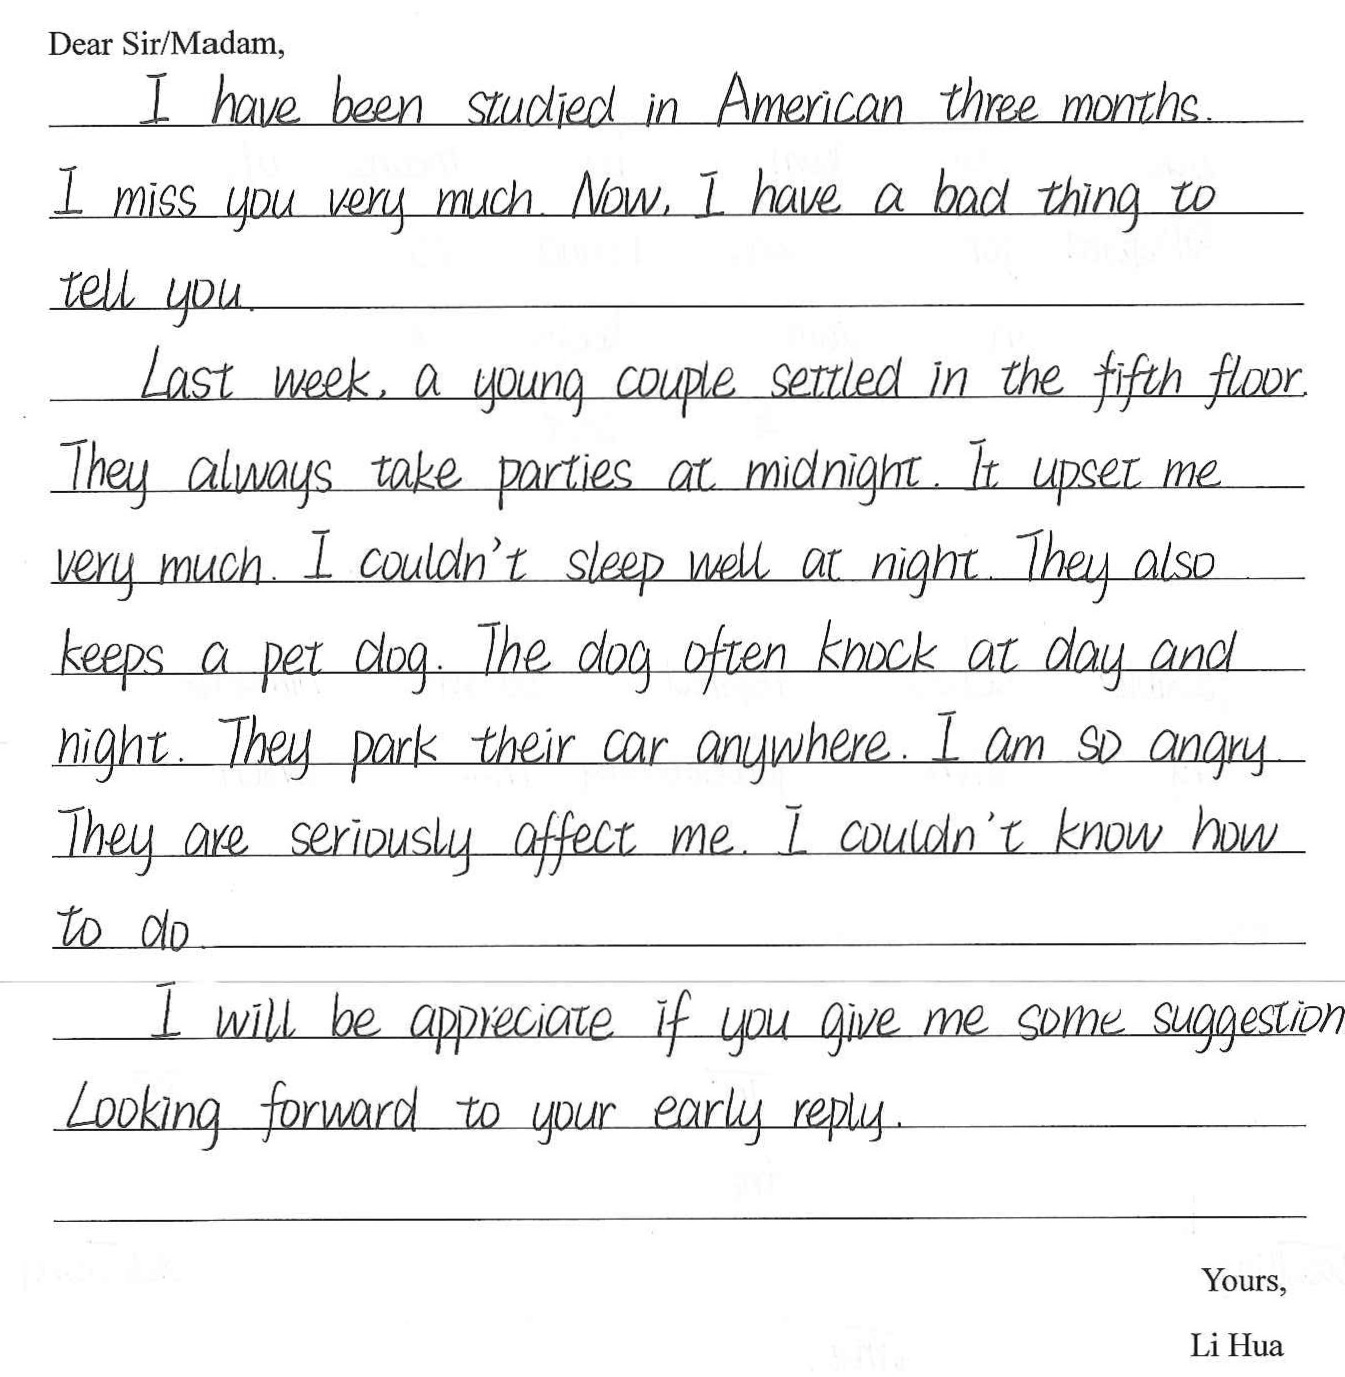 Dear Sir/Madam,
I have been studied in American three months.
I miss you very much. Now, I have a bad thing to
tell you.
Last week, a young couple settled in the fifth floor.
They always take parties at midnight. It upset me
very much. I couldn't sleep well at night. They also
keeps a pet dog. The dog often knock at day and
night. They park their car anywhere. I am so angry
They are seriously affect me. I couldn't know how
to do.
I will be appreciate if you give me some suggestion
Looking forward to your early reply.
Yours,
Li Hua